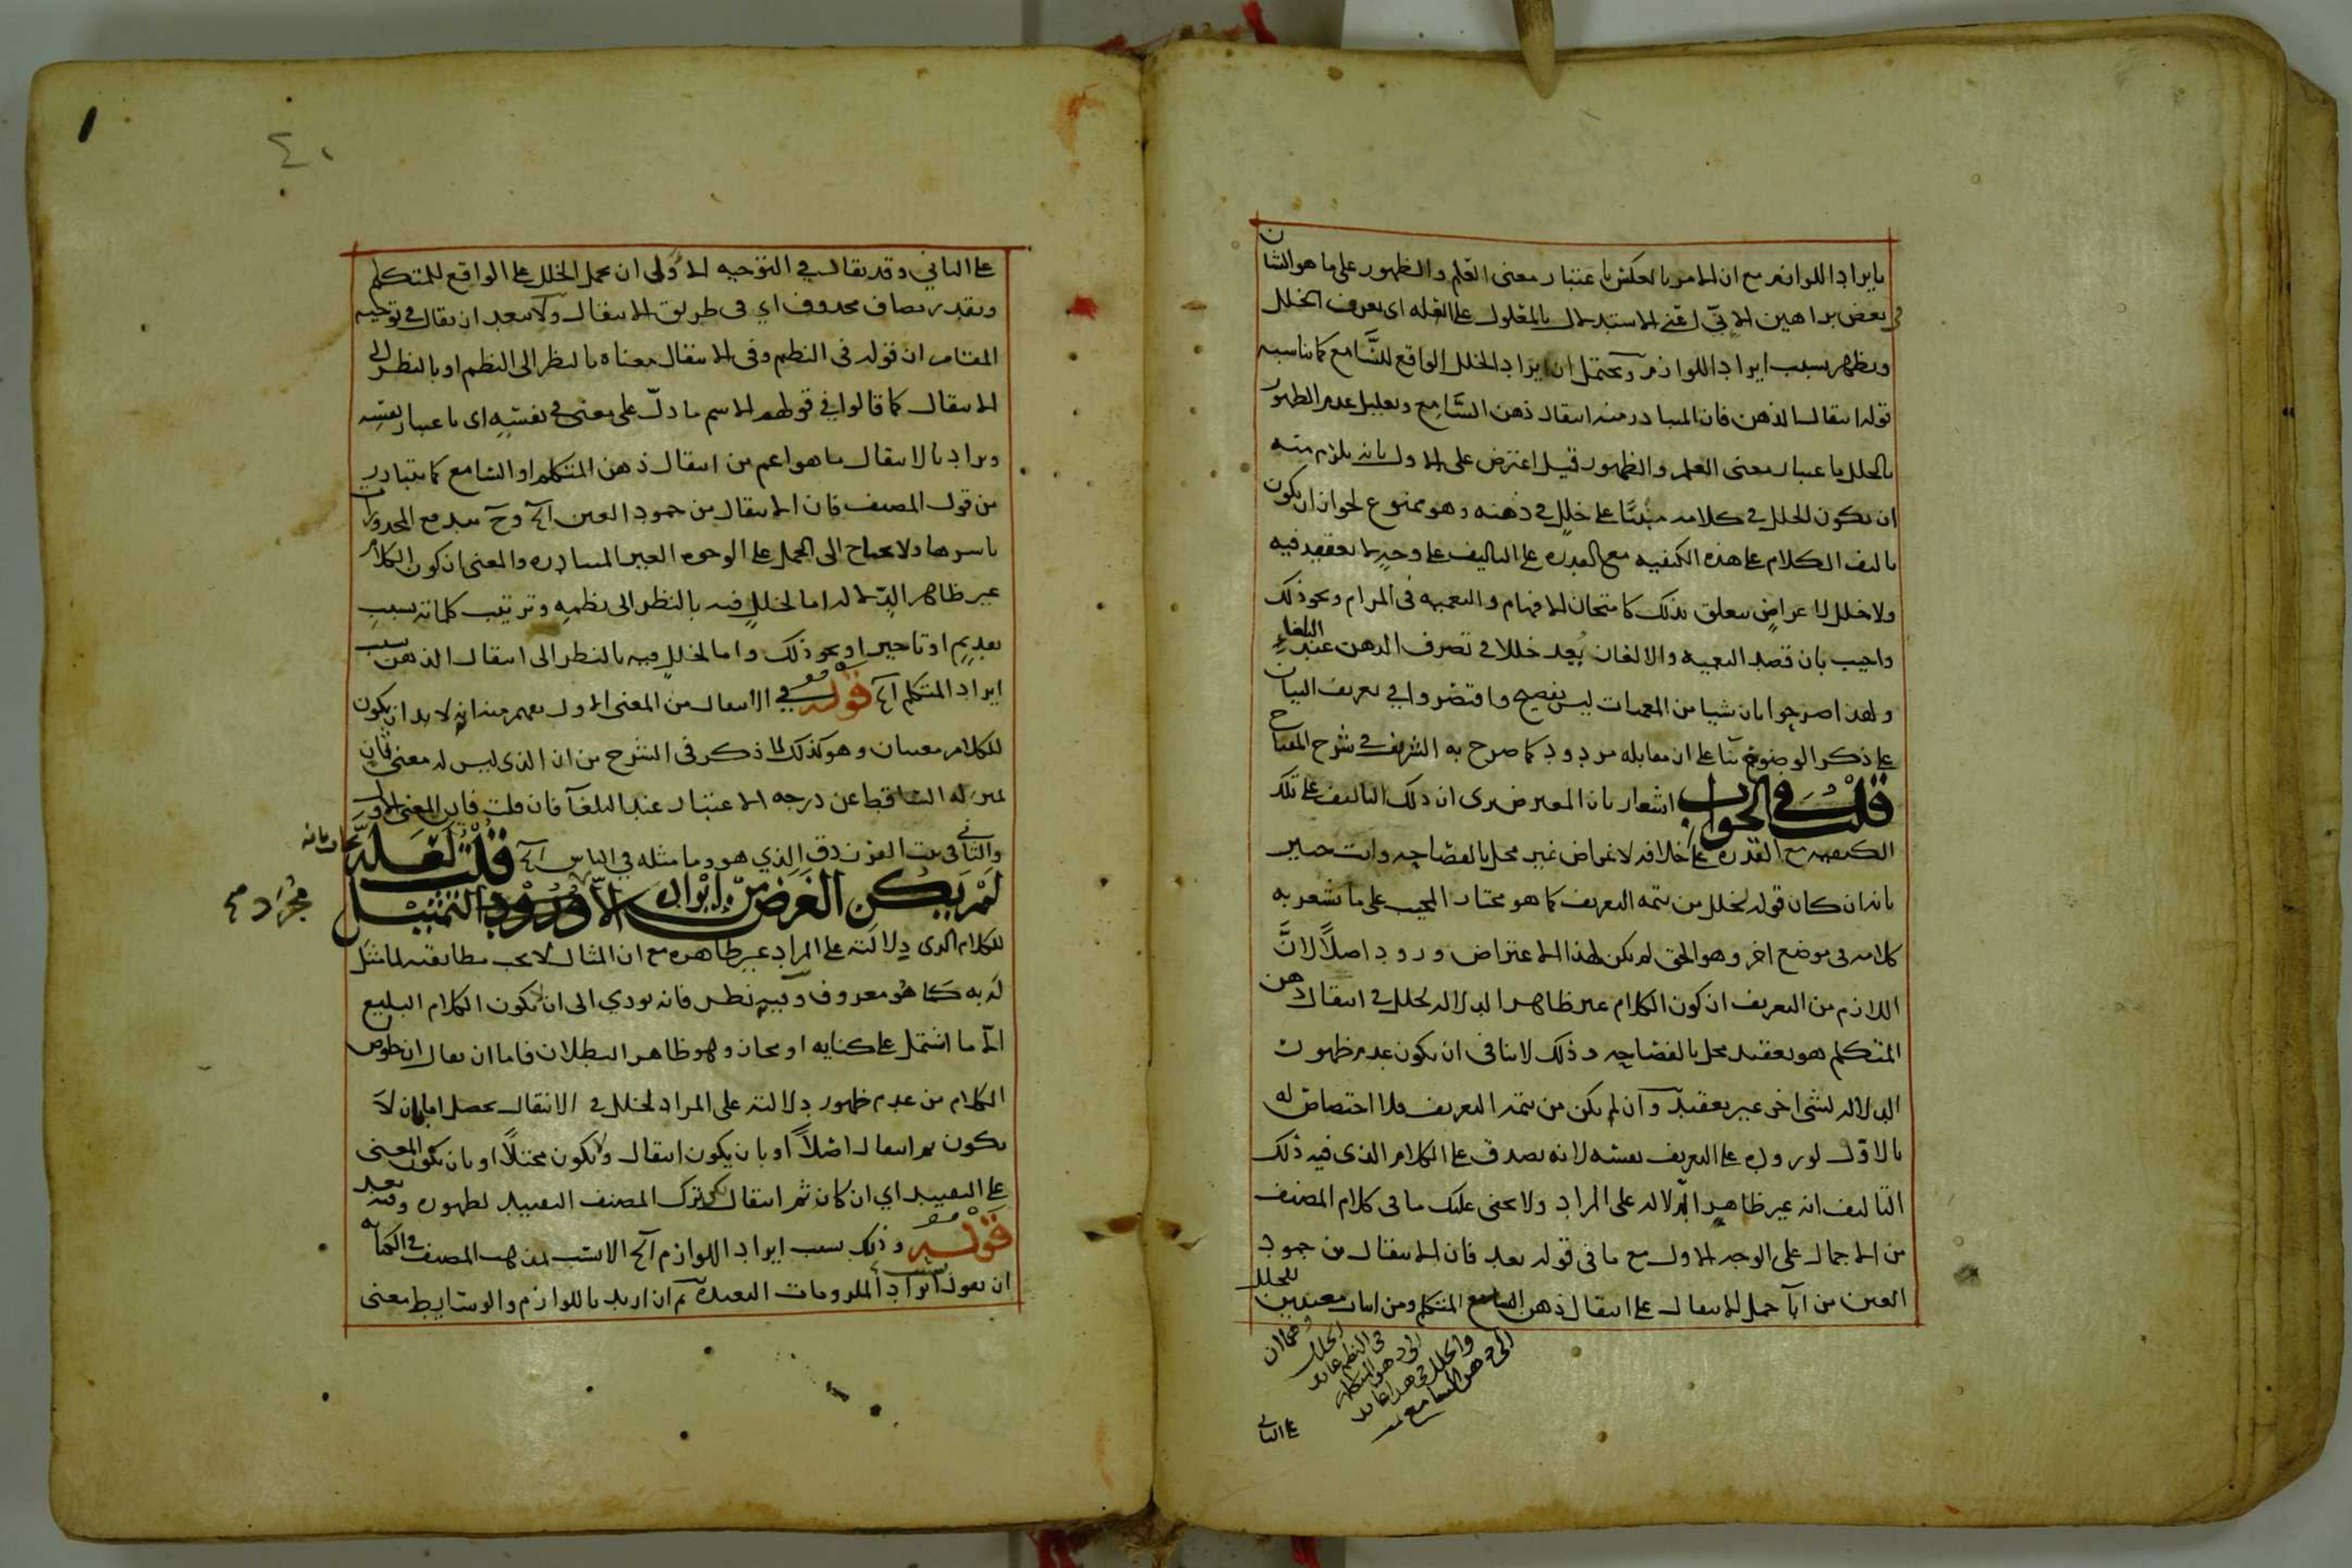 بايراد اللوازم مع ان الامر بالعكس باعتبار معنى العلم والظهور على ما هو الشان
في بعض براهين الإنّي اعنى الاستدلال بالمعلول على العله اى يعرف الخلل
ويظهر بسبب ايراد اللوازم ويحتمل ان ايراد الخلل الواقع للسَّامع كما يناسبه
قوله انتقال الذهن فان المبادر منه انتقال ذهن السَّامع وتعليل عدم الظهور
بالخلل باعتبار معنى العلم والظهور قيل اعترض على الاول بانه يلزم منه
ان يكون الخلل في كلامه مبنيًّا على خلل في ذهنه وهو ممنوع لجواز ان يكون
تاليف الكلام على هذه الكيفيه مع القدره على التاليف على وجه لا تعقيد فيه
ولا خلل لاعراض يتعلق بذلك كامتحان الافهام والتعميه فى المرام ونحو ذلك
واجيب بان قصد التعميه والالغاز يُعد خللا في تصرف الذهن عند البلغاء
ولهذا صرحوا بان شيا من المعميات ليس بفصيح واقتصروا في تعريف البيان
على ذكر الوضوح بنآ على ان مقابله مردود كما صرح به الشريف في شرح المفتاح
قلت في الجواب اشعار بان المعترض يرى ان ذلك التاليف على تلك
الكيفيه مع القدره على خلافه لاغراض غير مخل بالفصاحه وانت خبير
بانه ان كان قوله لخلل من تتمه التعريف كما هو مختار المجيب على ما يشعر به
كلامه فى موضع اخر وهو الحق لم يكن لهذا الاعتراض ورود اصلًا لانَّ
اللازم من التعريف ان كون الكلام غير ظاهر الدلاله لخلل في انتقال ذهن
المتكلم هو تعقيد مخل بالفصاحه وذلك لا ينافى ان يكون عدم ظهور
الدلاله لشى اخر غير تعقيد وان لم يكن من تتمه التعريف فلا اختصاص له
بالاوّل لوروده على التعريف نفسه لانه يصدق على الكلام الذى فيه ذلك
التاليف انه غير ظاهر الدّلاله على المراد ولا يخفى عليك ما فى كلام المصنف
من الاجمال على الوجه الاول مع ما فى قوله بعد فان الانتقال من جمود
العين من ابآ حمل الانتقال على انتقال ذهن السامع المتكلم ومن اثبات معنيين للخلل
وهما ان
الخلل
فى النظم عايد
الى ذهن المتكلم
والخلل فى هذا عايد
الى ذهن السامع
على الثاني
٤٠
على الثاني وقد يقال في التوجيه الاوّلى ان يحمل الخلل على الواقع للمتكلم
ويقدر مضاف محذوف اي فى طريق الانتقال ولا يبعد ان يقال في توجيه
المقام ان قوله فى النظم وفى الانتقال معناه بالنظر الى النظم او بالنظر الى
الانتقال كما قالوا في قولهم الاسم ما دلّ على معنى في نفسِهِ اى باعتبار نفسِه
ويراد بالانتقال ما هو اعم من انتقال ذهن المتكلم او السامع كما يتبادر
من قول المصنف فان الانتقال من جمود العين آلخ وح يندفع المحذورات
باسرها ولا يحتاج الى الحمل على الوجوه الغير المتبادره والمعنى ان كون الكلام
غير ظاهر الدّلاله اما لخلل فيه بالنظر الى نظمِهِ وترتيب كلماته بسبب
تقديم او تاخير او نحو ذلك واما لخلل فيه بالنظر الى انتقال الذهن بسبب
ايراد المتكلم آلخ قوله في الانتقال من المعنى الاول يفهم منه انه لا بد ان يكون
للكلام معنيان وهو كذلك لما ذكر فى الشرح من ان الذى ليس له معنى ثانٍ
بمنزله الساقط عن درجه الاعتبار عند البلغآ فان قلت فاين المعنى الاول
والثاني فى بيت الفرزدق الذي هو وما مثله في الناس آلخ قلت لعله يجاب بانه
لم يكن الغرض من ايراده الاورود التمثيل مجرد
للكلام الذى دلالته على المراد غير ظاهره مع ان المثال لا يجب مطابقته لما مثل
له به كما هو معروف وفيه نظر فانه يودي الى ان لا يكون الكلام البليغ
الّا ما اشتمل على كنايه او مجاز وهو ظاهر البطلان فاما ان يقال ان خلوص
الكلام من عدم ظهور دلالته على المراد لخلل في الانتقال يحصل اما بان لا
يكون ثم انتقال اصلًا او بان يكون انتقال ولا يكون مختلًا او بان يكون المعنى
على التقييد اي ان كان ثم انتقال لكن ترك المصنف التقييد لظهوره وفيه بعد
قوله وذلك بسبب ايراد اللوازم آلخ الانسب لمذهب المصنف في الكنايه
ان يقول بسبب ايراد الملزومات البعيده ثم ان اريد باللوازم والوسايط معنى